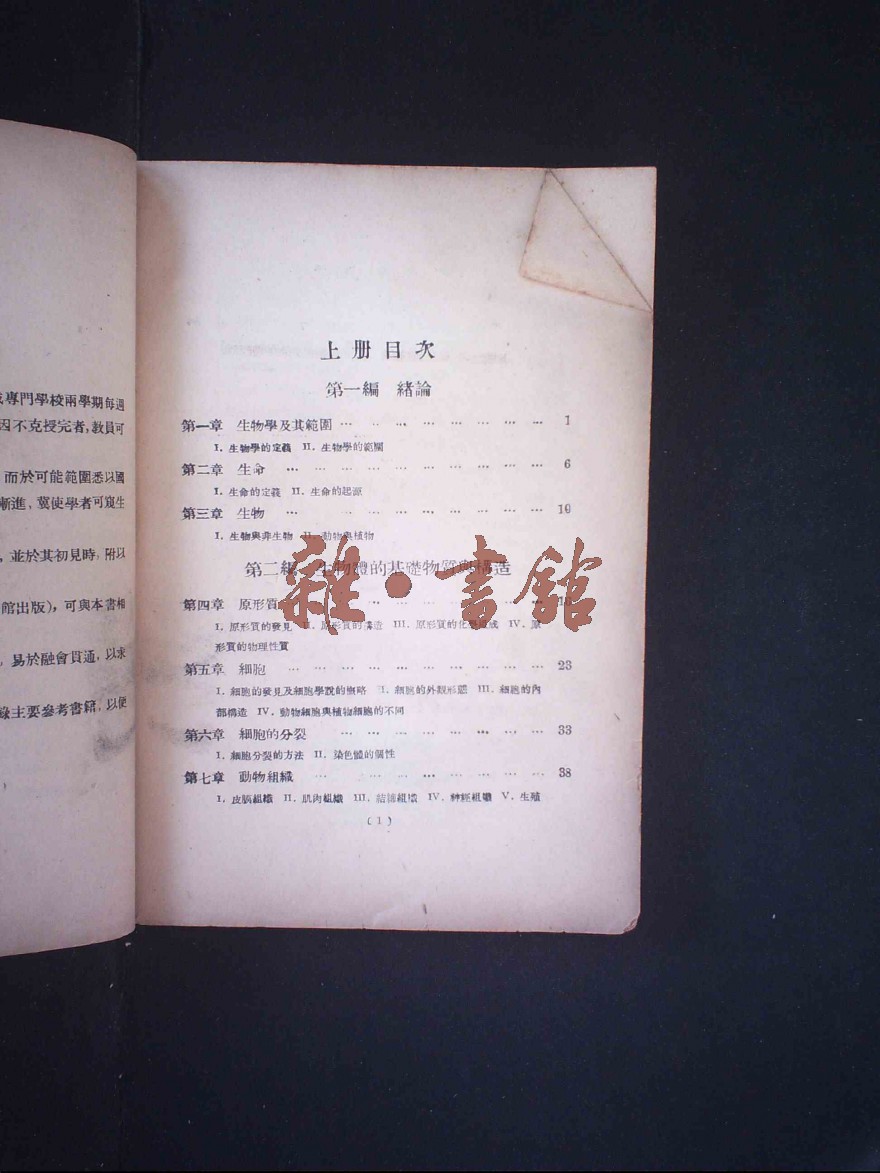 專門學校兩學期每週
因不克授完者,教員可
而於可能範圍悉以國
漸進,冀使學者可窺生
並於其初見時,附以
館出版),可與本書相
易於融會貫通,以求
錄主要參考書籍,以便
上册目次
第一編 緒論
第一章 生物學及其範圍 … … … … … … … … 1
I. 生物學的定義 II. 生物學的範圍
第二章 生命 … … … … … … … … … … 6
I. 生命的定義 II. 生命的起源
第三章 生物 … … … … … … … … … … 10
I. 生物與非生物 II. 動物與植物
第二編 生物體的基礎物質與構造
第四章 原形質 … … … … … … … …
I. 原形質的發見 II. 原形質的構造 III. 原形質的化學組成 IV. 原
形質的物理性質
第五章 細胞 … … … … … … … … … … 23
I. 細胞的發見及細胞學說的概略 II. 細胞的外觀形態 III. 細胞的內
部構造 IV. 動物細胞與植物細胞的不同
第六章 細胞的分裂 … … … … … … … 33
I. 細胞分裂的方法 II. 染色體的個性
第七章 動物組織 … … … … … … … … 38
I. 皮膜組織 II. 肌肉組織 III. 結締組織 IV. 神經組織 V. 生殖
(1)
雜·書館